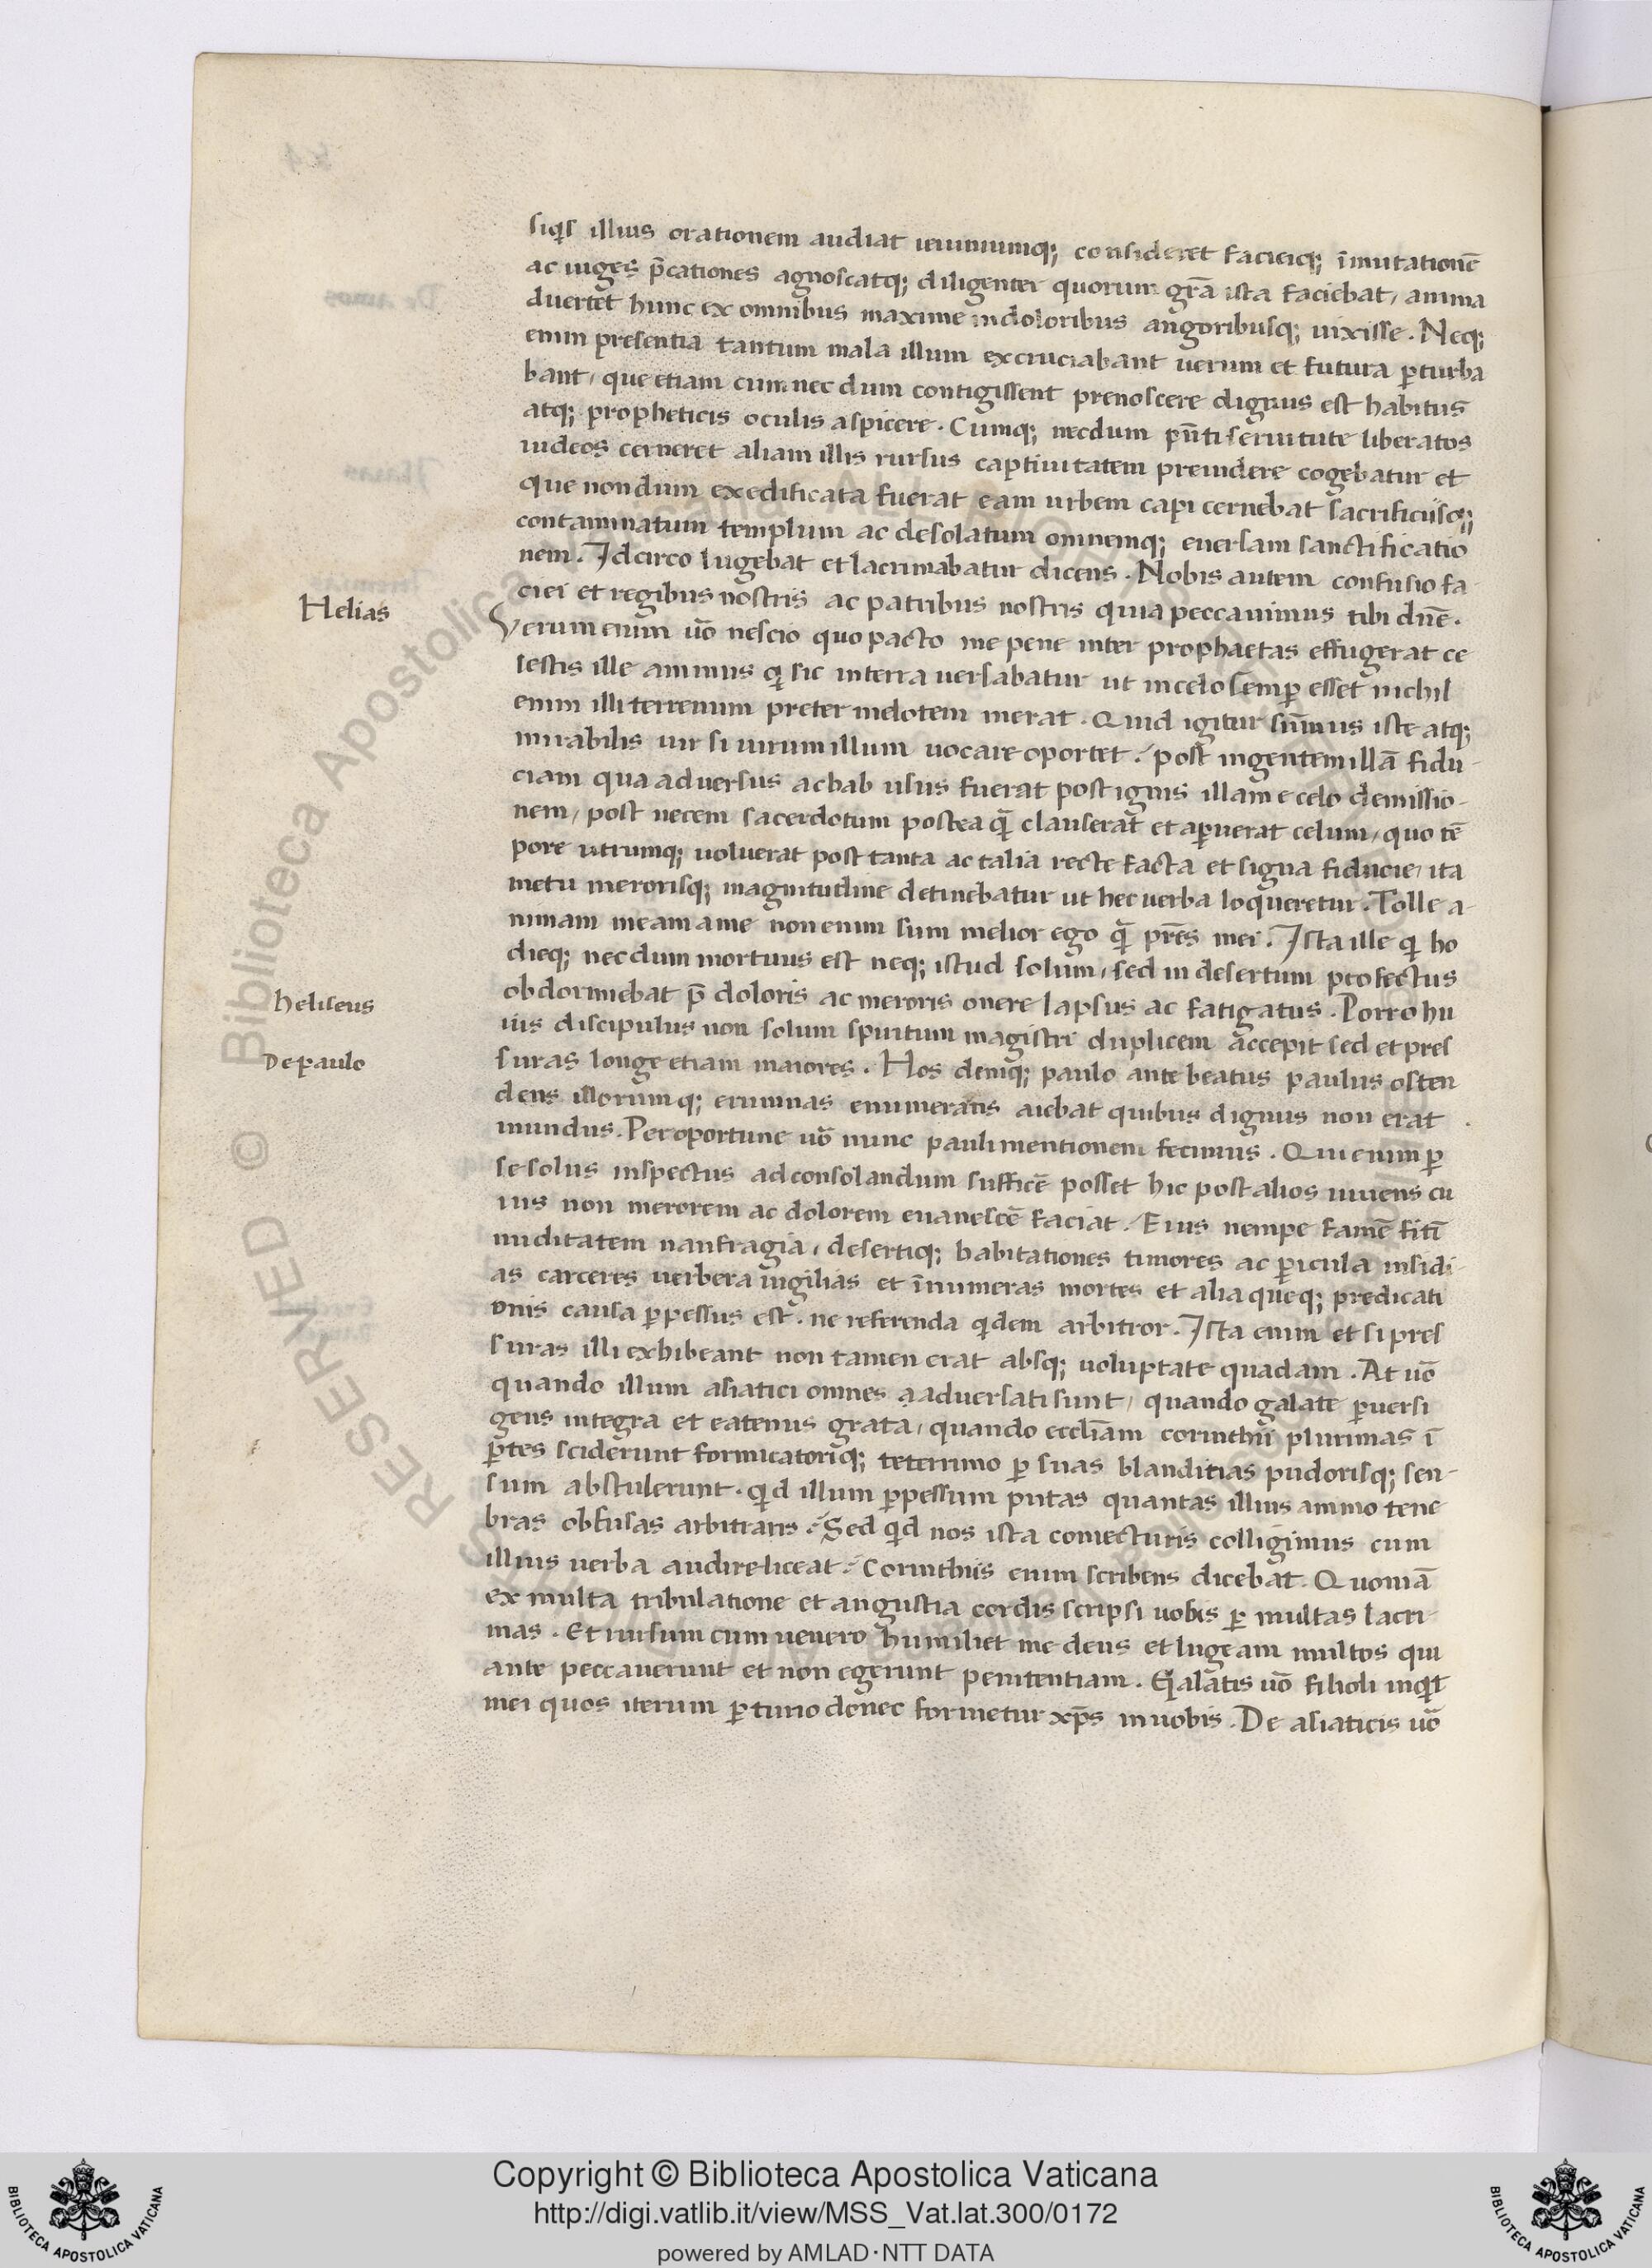 siqͥs illius orationem audiat ieiuniumq; consideret facieiq; īmutationē
ac iuges p̄cationes agnoscatq; diligenter quorum grā ista faciebat, anima
duertet hunc ex omnibus maxime in doloribus angoribusq; uixisse. Neq;
enim presentia tantum mala illum excruciabant uerum et futura ꝑturba
bant, que etiam cum nec dum contigissent prenoscere dignus est habitus
atq; propheticis oculis aspicere. Cumq; necdum pn̄ti seruitute liberatos
iudeos cerneret aliam illis rursus captiuitatem preuidere cogebatur et
que nondum exedificata fuerat eam urbem capi cernebat sacrificiisq;
contaminatum templum ac desolatum omnemq; euersam sanctificatio
nem. Idcirco lugebat et lacrimabatur dicens. Nobis autem confusio fa-
ciei et regibus nostris ac patribus nostris quia peccauimus tibi dn̄e.
Helias
Verum enim uō nescio quo pacto me pene inter prophaetas effugerat ce
lestis ille animus qͥ sic in terra uersabatur ut in celo semꝑ esset nichil
enim illi terrenum preter melotem inerat. Quid igitur sum̄us iste atq;
mirabilis uir si uirum illum uocare oportet. post ingentem illā fidu-
ciam qua aduersus achab usus fuerat post ignis illam e celo demissio-
nem, post necem sacerdotum postea q̄ clauserat et aꝑuerat celum, quo tē
pore utrumq; uoluerat post tanta ac talia recte facta et signa fiducie, ita
metu merorisq; magnitudine detinebatur ut hec uerba loqueretur. Tolle a-
nimam meam a me non enim sum melior ego q̄ pr̄es mei. Ista ille qͥ ho
dieq; nec dum mortuus est neq; istud solum, sed in desertum profectus
heliseus
obdormiebat p̄ doloris ac meroris onere lapsus ac fatigatus. Porro hu
ius discipulus non solum spiritum magistri duplicem accepit sed et pres
De paulo
suras longe etiam maiores. Hos deniq; paulo ante beatus paulus osten
dens illorumq; erumnas enumerans aiebat quibus dignus non erat
mundus. Peroportune uō nunc pauli mentionem fecimus. Qui enim ꝑ
se solus inspectus ad consolandum sufficē posset hic post alios iuuens cu
ius non merorem ac dolorem euanescē faciat. Eius nempe famē sitī
nuditatem naufragia, desertiq; habitationes timores ac ꝑicula insidi-
as carceres uerbera uigilias et īnumeras mortes et alia queq; predicati
onis causa ꝑpessus est. ne referenda qͥdem arbitror. Ista enim et si pres
suras illi exhibeant non tamen erat absq; uoluptate quadam. At uō
quando illum asiatici omnes aduersati sunt, quando galate ꝑuersi
gens integra et eatenus grata, quando eccl̄iam corinthii plurimas ī
ꝑtes sciderunt fornicatoriq; teterrimo ꝑ suas blanditias pudorisq; sen-
sum abstulerunt. qͥd illum ꝑpessum putas quantas illius animo tene
bras obfusas arbitraris. Sed qͥd nos ista coniecturis colligimus cum
illius uerba audire liceat. Corinthiis enim scribens dicebat. Quoniā
ex multa tribulatione et angustia cordis scripsi uobis ꝑ multas lacri-
mas. Et rursum cum uenero humiliet me deus et lugeam multos qui
ante peccauerunt et non egerunt penitentiam. Galatis uō filioli inqͥt
mei quos iterum ꝑturio donec formetur xp̄s in uobis. De asiaticis uō
Copyright © Biblioteca Apostolica Vaticana
http://digi.vatlib.it/view/MSS_Vat.lat.300/0172
powered by AMLAD·NTT DATA